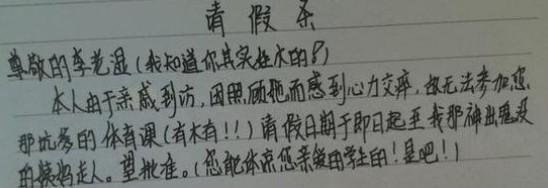 请假条
尊敬的李老湿(我知道你其实挺水的!)
本人由于亲戚到访,因照顾她而感到心力交瘁,故无法参加您
那坑爹的体育课(有木有!!)请假日期于即日起至我那神出鬼没
的姨妈走人。望批准。(您能体谅您亲爱的学生的!是吧!)